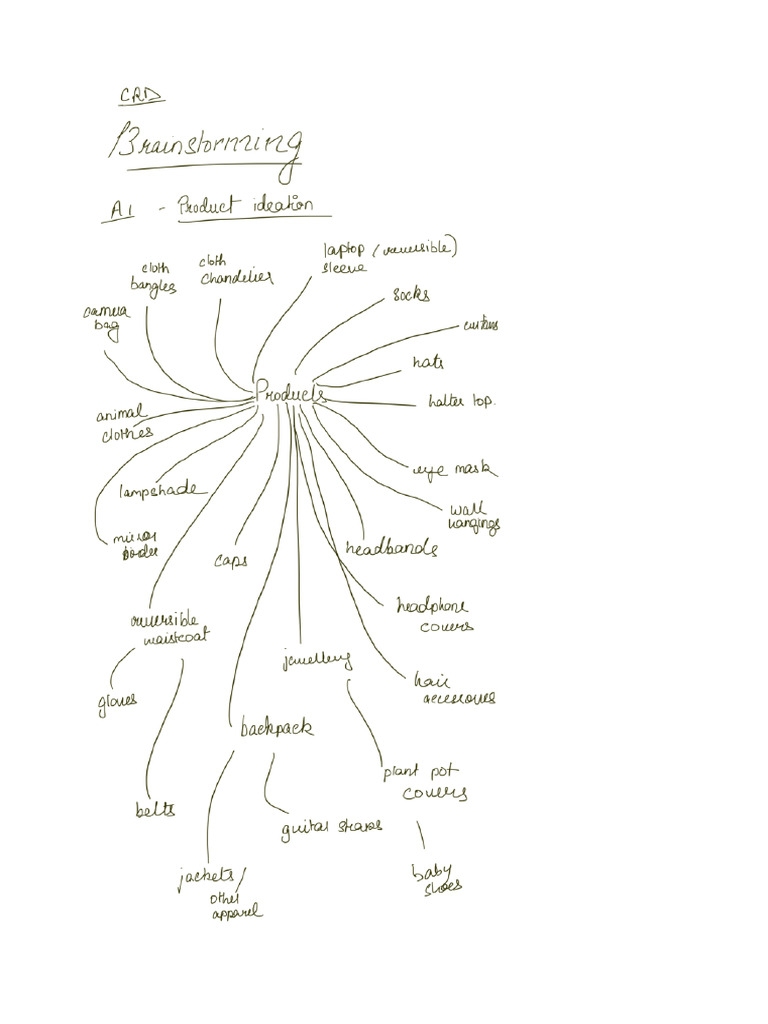 CRD
Brainstorming
A1 - Product ideation
laptop (reversible)
sleeve
cloth
bangles
cloth
chandelier
socks
camera
bag
curtains
hats
Products
halter top.
animal
clothes
eye mask
lampshade
wall
hangings
mirror
border
caps
headbands
headphone
covers
reversible
waistcoat
jewellery
hair
accessories
gloves
backpack
plant pot
covers
belts
guitar straps
jackets/
other
apparel
baby
shoes